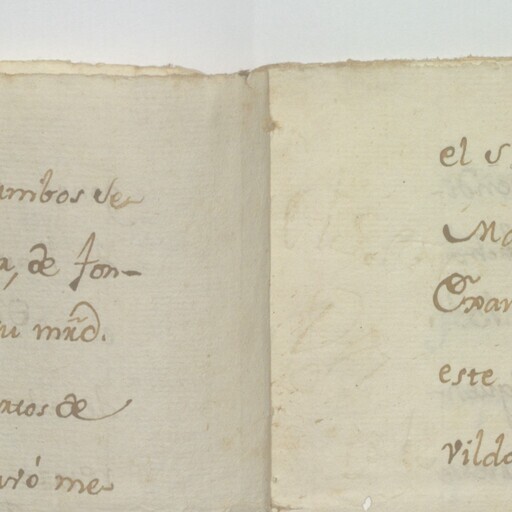 ambos de
de fon-
mrd.
tos de
ró me
el
Ma
Exam
este
vilda